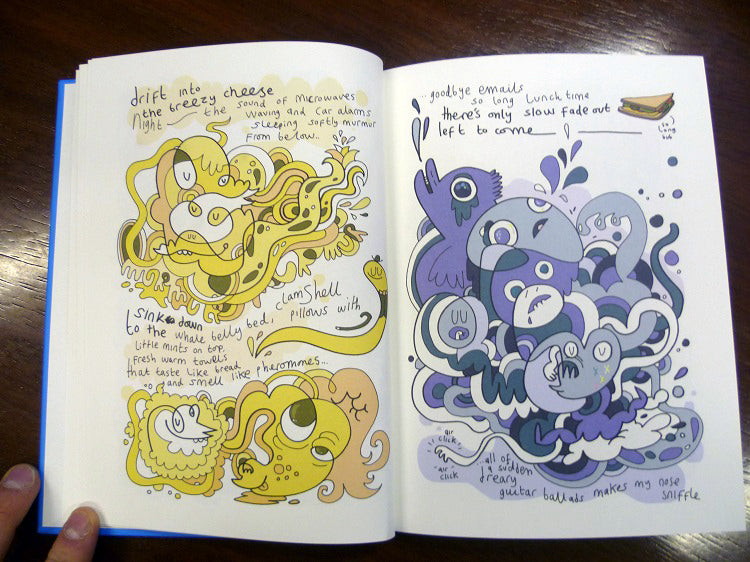 drift into
the breezy cheese
Night — the sound of microwaves
waving and car alarms
sleeping softly murmur
from below..
I sink down
to the whale belly bed,
clamshell
pillows with
little mints on top.
fresh warm towels
that taste like bread
and smell like pheromones...
...goodbye emails
so long lunch time
there's only slow fade out
left to come
(so)
long
air
click
air
click
all of
a sudden
dreary
guitar ballads makes my nose
sniffle